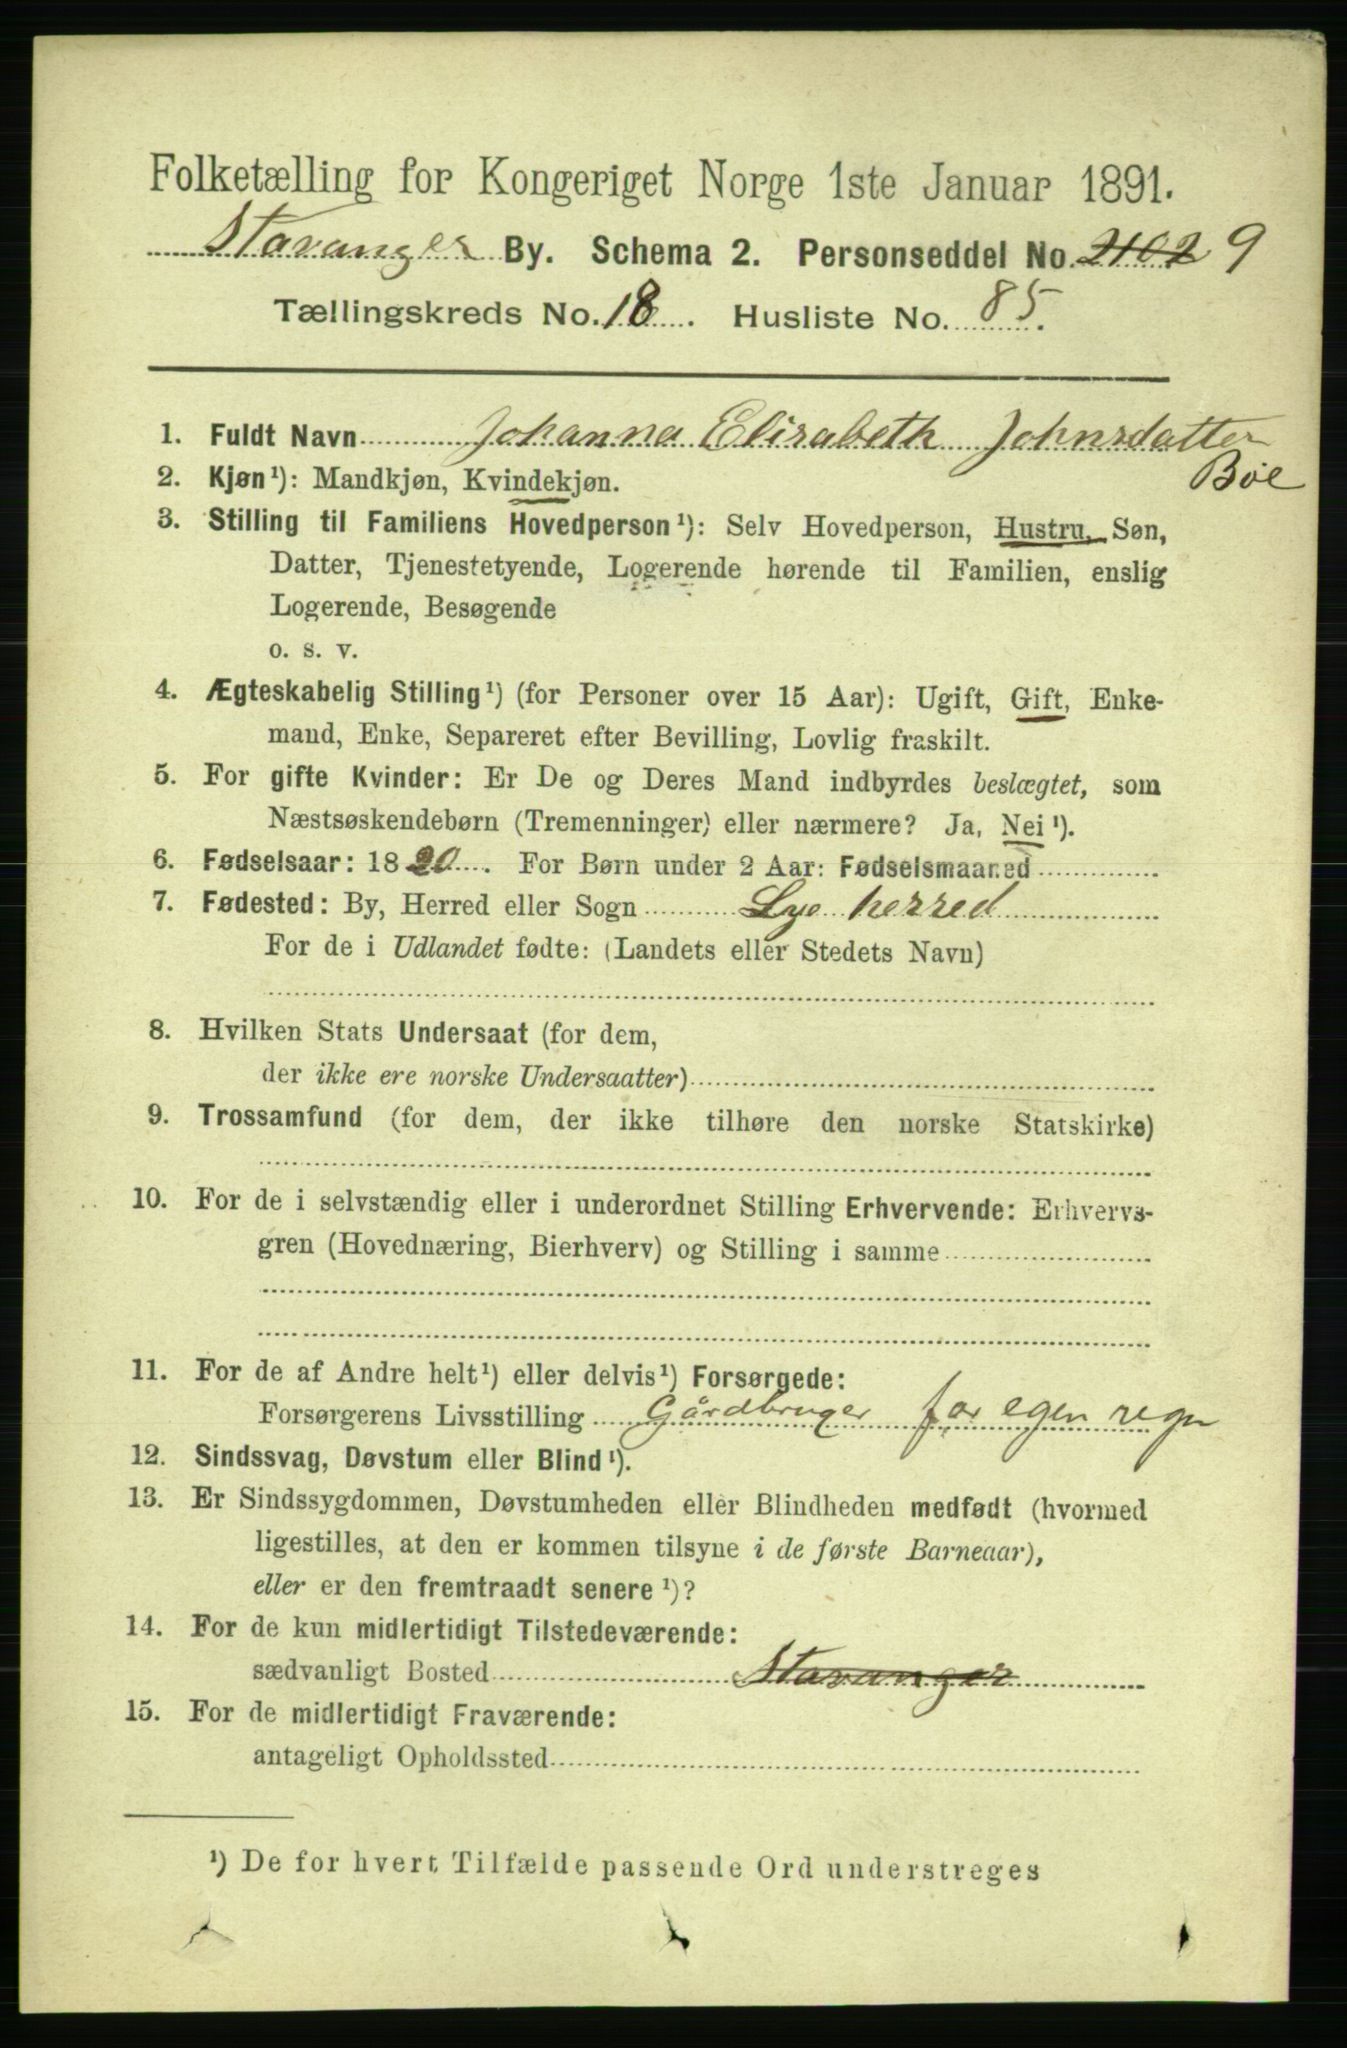 Folketælling for Kongeriget Norge 1ste Januar 1891.
Stavanger By. Schema 2. Personseddel No. 2102 9
Tællingskreds No. 18. Husliste No. 85.
1. Fuldt Navn Johanna Elisabeth Johnsdatter
Böe
2. Kjøn¹): Mandkjøn, Kvindekjøn.
3. Stilling til Familiens Hovedperson¹): Selv Hovedperson, Hustru, Søn,
Datter, Tjenestetyende, Logerende hørende til Familien, enslig
Logerende, Besøgende
o. s. v.
4. Ægteskabelig Stilling¹) (for Personer over 15 Aar): Ugift, Gift, Enke-
mand, Enke, Separeret efter Bevilling, Lovlig fraskilt.
5. For gifte Kvinder: Er De og Deres Mand indbyrdes beslægtet, som
Næstsøskendebørn (Tremenninger) eller nærmere? Ja, Nei¹).
6. Fødselsaar: 1820. For Børn under 2 Aar: Fødselsmaaned
7. Fødested: By, Herred eller Sogn Lye herred
For de i Udlandet fødte: (Landets eller Stedets Navn)
8. Hvilken Stats Undersaat (for dem,
der ikke ere norske Undersaatter)
9. Trossamfund (for dem, der ikke tilhøre den norske Statskirke)
10. For de i selvstændig eller i underordnet Stilling Erhvervende: Erhvervs-
gren (Hovednæring, Bierhverv) og Stilling i samme
11. For de af Andre helt¹) eller delvis¹) Forsørgede:
Forsørgerens Livsstilling Gårdbruger for egen regn
12. Sindssvag, Døvstum eller Blind¹).
13. Er Sindssygdommen, Døvstumheden eller Blindheden medfødt (hvormed
ligestilles, at den er kommen tilsyne i de første Barneaar),
eller er den fremtraadt senere¹)?
14. For de kun midlertidigt Tilstedeværende:
sædvanligt Bosted Stavanger
15. For de midlertidigt Fraværende:
antageligt Opholdssted
¹) De for hvert Tilfælde passende Ord understreges